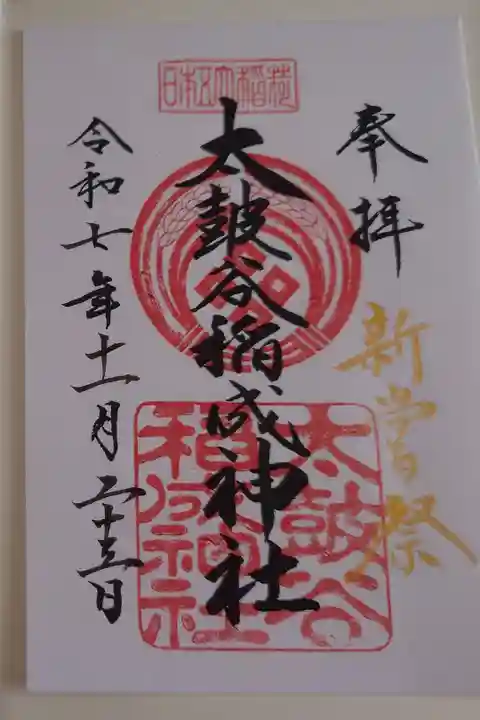 奉拝
新嘗祭
日本五大稲荷
太皷谷稲成神社
太皷谷
稲成神社
令和七年十一月二十三日